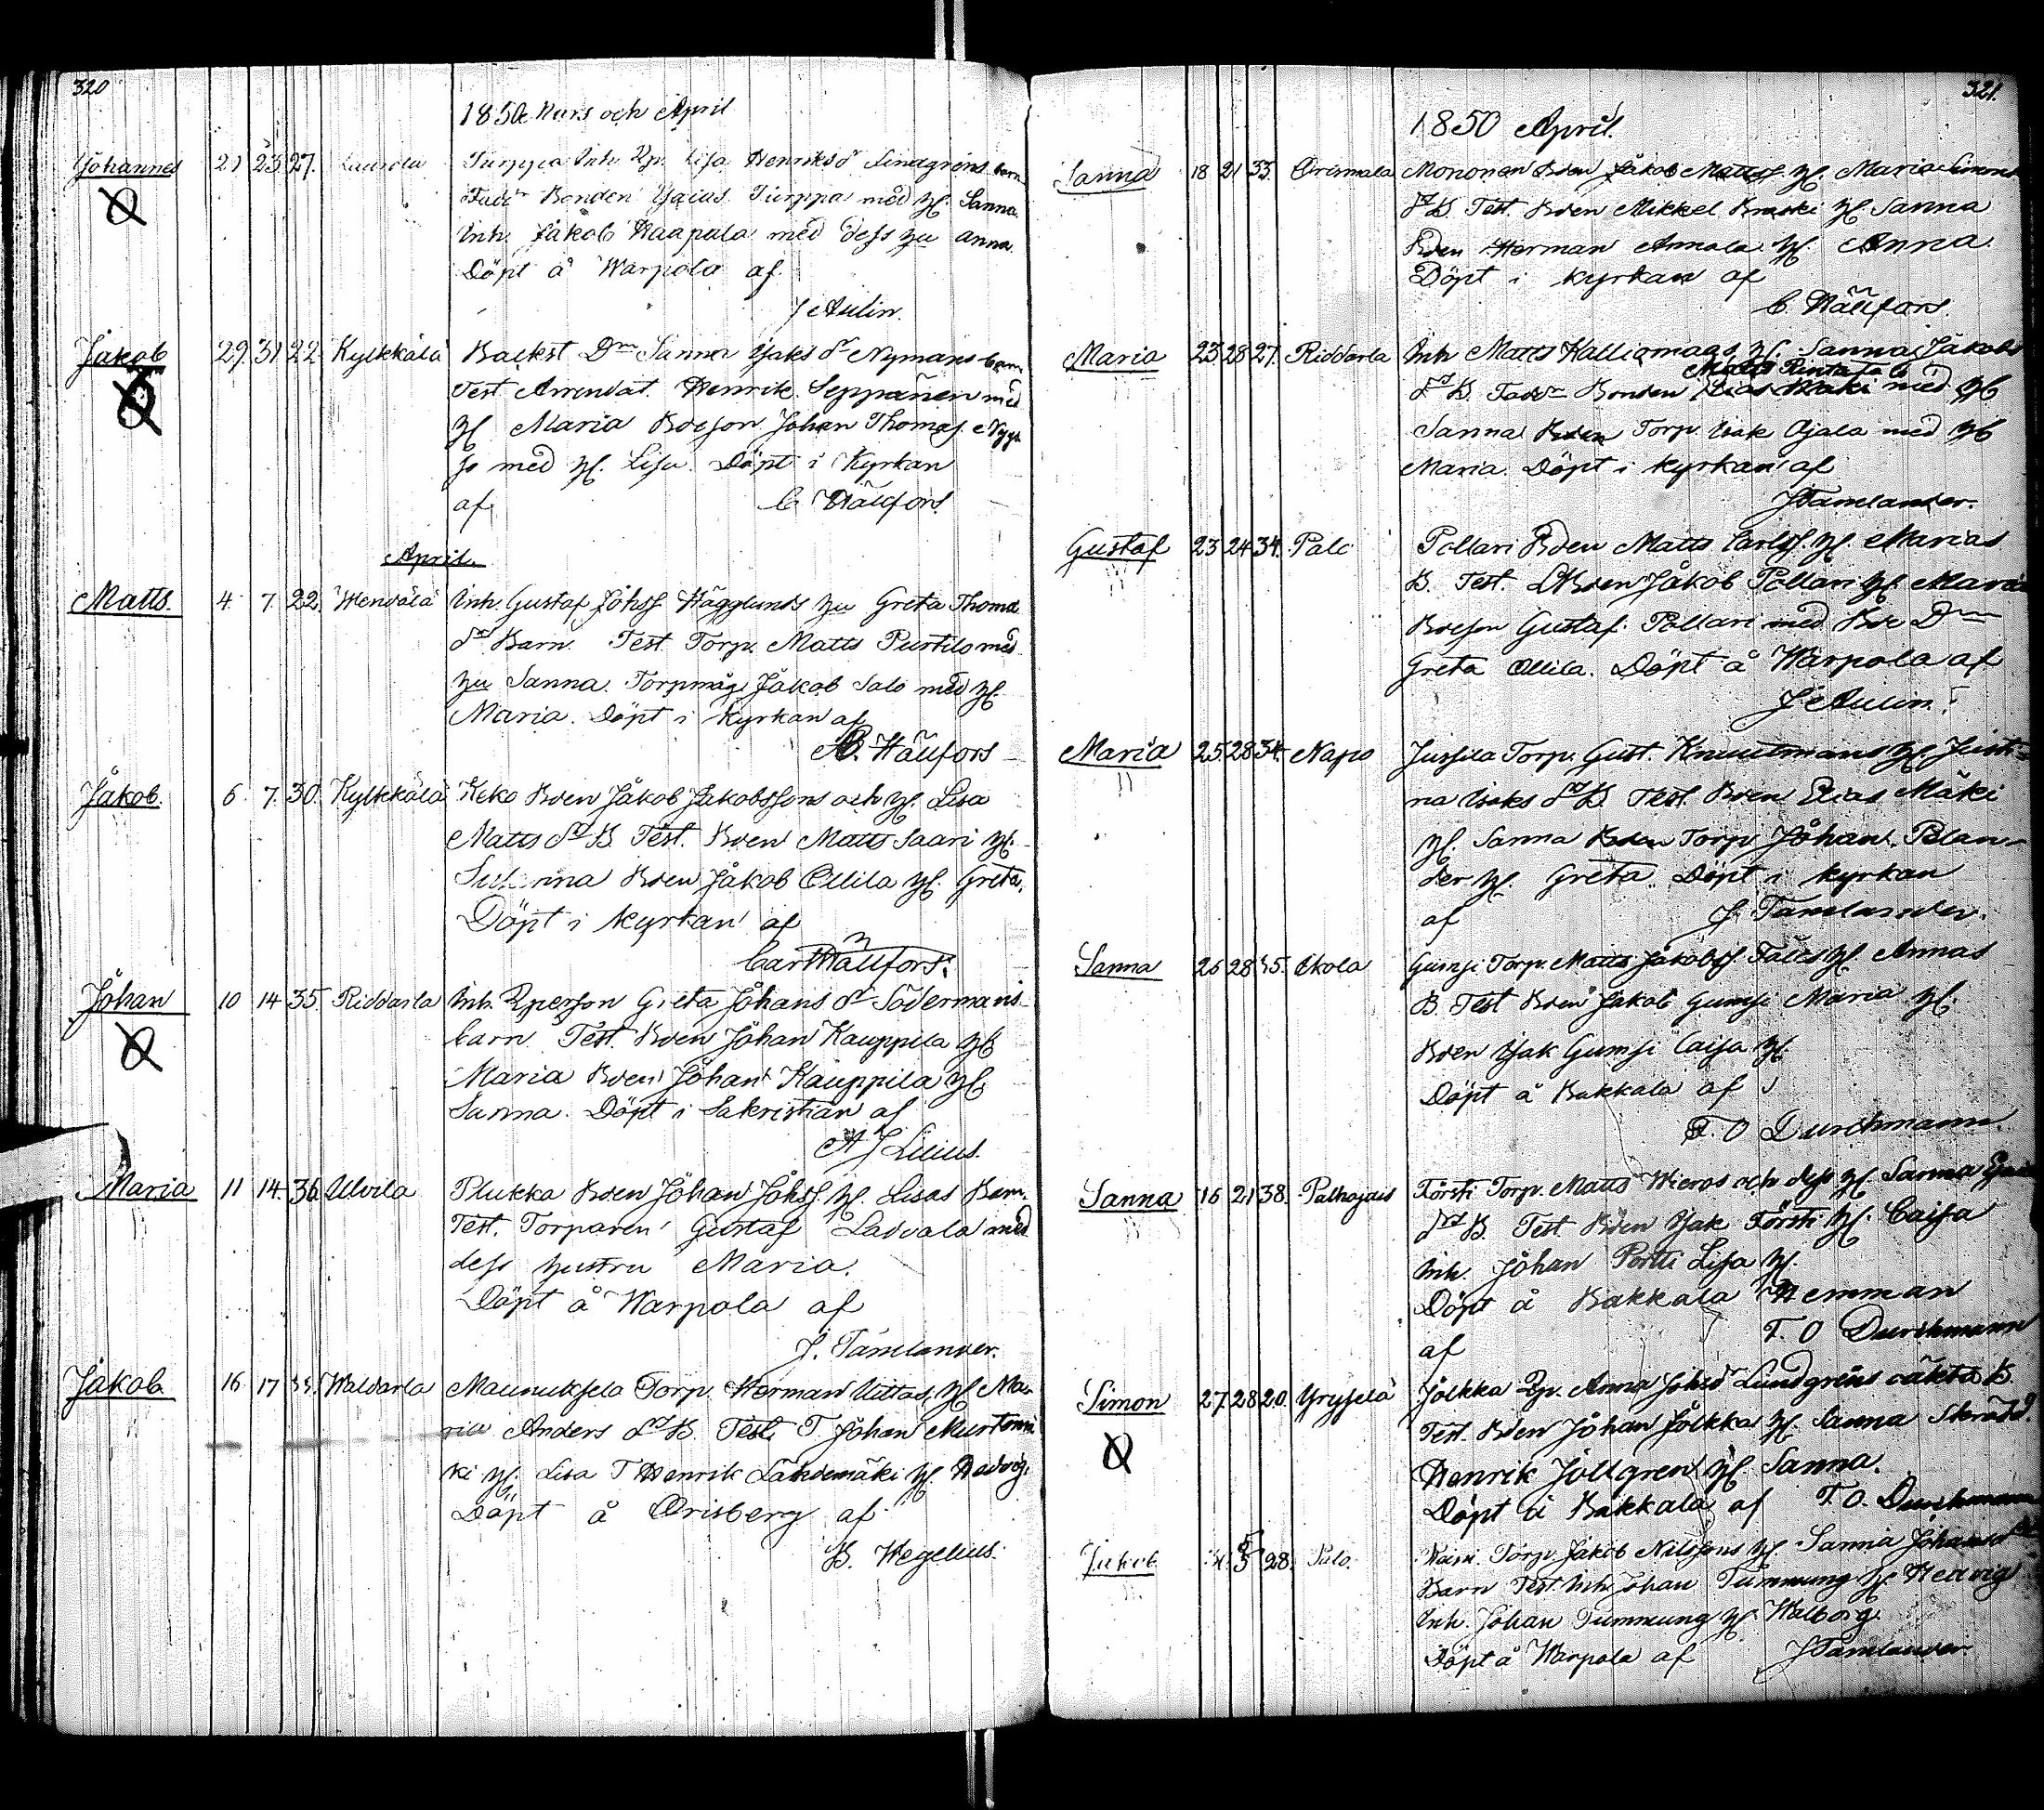 320
1850 Mars och April
Johannes 21 23 27. Laurola Turppa Inh. Qp. Lisa Henriksdr Lindgrens barn
Faddr Bonden Isaias Turppa med H. Sanna.
Inh. Jakob Haapala med dess hu Anna.
Döpt å Warpola af
J Aulin.
Jakob 29. 31 22. Kylkkälä Backst. Dr Sanna Isaks dr Nymans barn
Test Arrendat. Henrik Seppänen med
H. Maria Bdeson Johan Thomas. Nygå
jo med H. Lisa. Döpt i Kyrkan
af C. Hällfors
April
Matts. 4. 7. 22. Wendälä Inh. Gustaf Johss Hägglunds hu Greta Thoms
dr Barn. Test Torp. Matts Purtilo med
hu Sanna. Torpmåg Jakob Salo med H.
Maria. Döpt i Kyrkan af
C. Hällfors
Jakob. 6. 7. 30. Kylkkälä Keko Bden Jakob Jakobssons och H. Lisa
Matts dr B. Test. Bden Matts Saari H.
Susanna Bden Jakob Ollila H. Greta.
Döpt i Kyrkan af
Carl Hällfors.
Johan 10 14 35. Riddarla Inh. Qperson Greta Johans dr Södermans
barn. Test. Bden Johan Kauppila H.
Maria Bden Johan Kauppila H.
Sanna. Döpt i Sakristian af
A J Lilius.
Maria 11 14. 36. Ulvila Plukka Bden Johan Johss. H. Lisas Barn.
Test. Torparen Gustaf Ladvala med
dess hustru Maria.
Döpt å Warpola af
J. Tamelander.
Jakob. 16 17 Waldarla Maunuksela Torp. Herman Uittas. H. Ma-
ria Anders dr B. Test. T. Johan Murtomä
ki H. Lisa T Henrik Lähdemäki H. Hedvig.
Döpt å Orisberg af
B. Wegelius.
321.
1850 April.
Sanna 18 21 33. Orismala Mononen Bden Jakob Mattss. H. Maria Simons
dr B. Test. Bden Mikkel Kraski H. Sanna
Bden Herman Annala H. Anna.
Döpt i Kyrkan af
C. Hällfors.
Maria 23 28 27. Riddarla Inh Matts Kalliomaas H. Sanna Jakobs
Matts Rintasalo
dr B. Faddr Bonden Elias Mäki med H.
Sanna Bden Torp. Isak Ojala med H.
Maria. Döpt i Kyrkan af
J Tamelander.
Gustaf 23 24 34. Palo Pollari Bden Matts Carlss. H. Marias
B. Test. Bden Jakob Pollari H. Maria
Bdeson Gustaf Pollari med Bde Dr
Greta Ollila. Döpt å Warpola af
J Aulin.
Maria 25. 28 34. Napo Jussila Torp. Gust. Knuutmans H. Justi-
na Isaks dr B. Test. Bden Elias Mäki
H. Sanna Bden Torp. Johan Pelan-
der H. Greta. Döpt i Kyrkan
af J. Tamelander.
Sanna 26 28 35. Ikola Gumsi Torp. Matts Jakobss Fält H. Annas
B. Test Bden Jakob Gumsi Maria H.
Bden Isak Gumsi Caisa H.
Döpt å Bakkala af
T. O Durchmann.
Sanna 16 21 38. Palhojais Försti Torp. Matts Wieros och dess H. Sanna
dr B. Test Bden Isak Försti H. Caisa
Inh. Johan Portti Lisa H.
Döpt å Bakkala Hemman
af T. O Durchmann
Simon 27. 28 20. Yrysselä Jolkka Qp. Anna Johsdr Lundgrens oäkta B.
Test. Bden Johan Jolkka H. Sanna Skrädd.
Henrik Jollgren H. Sanna.
Döpt å Bakkala af T. O. Durchmann
Jakob 30. 5 28. Palo. Torp. Jakob Nilssons H. Sanna Johansdr
Barn Test. Inh. Johan Tummung H. Hedvig
Inh. Johan Tummung H. Walborg.
Döpt å Warpola af J Tamelander.